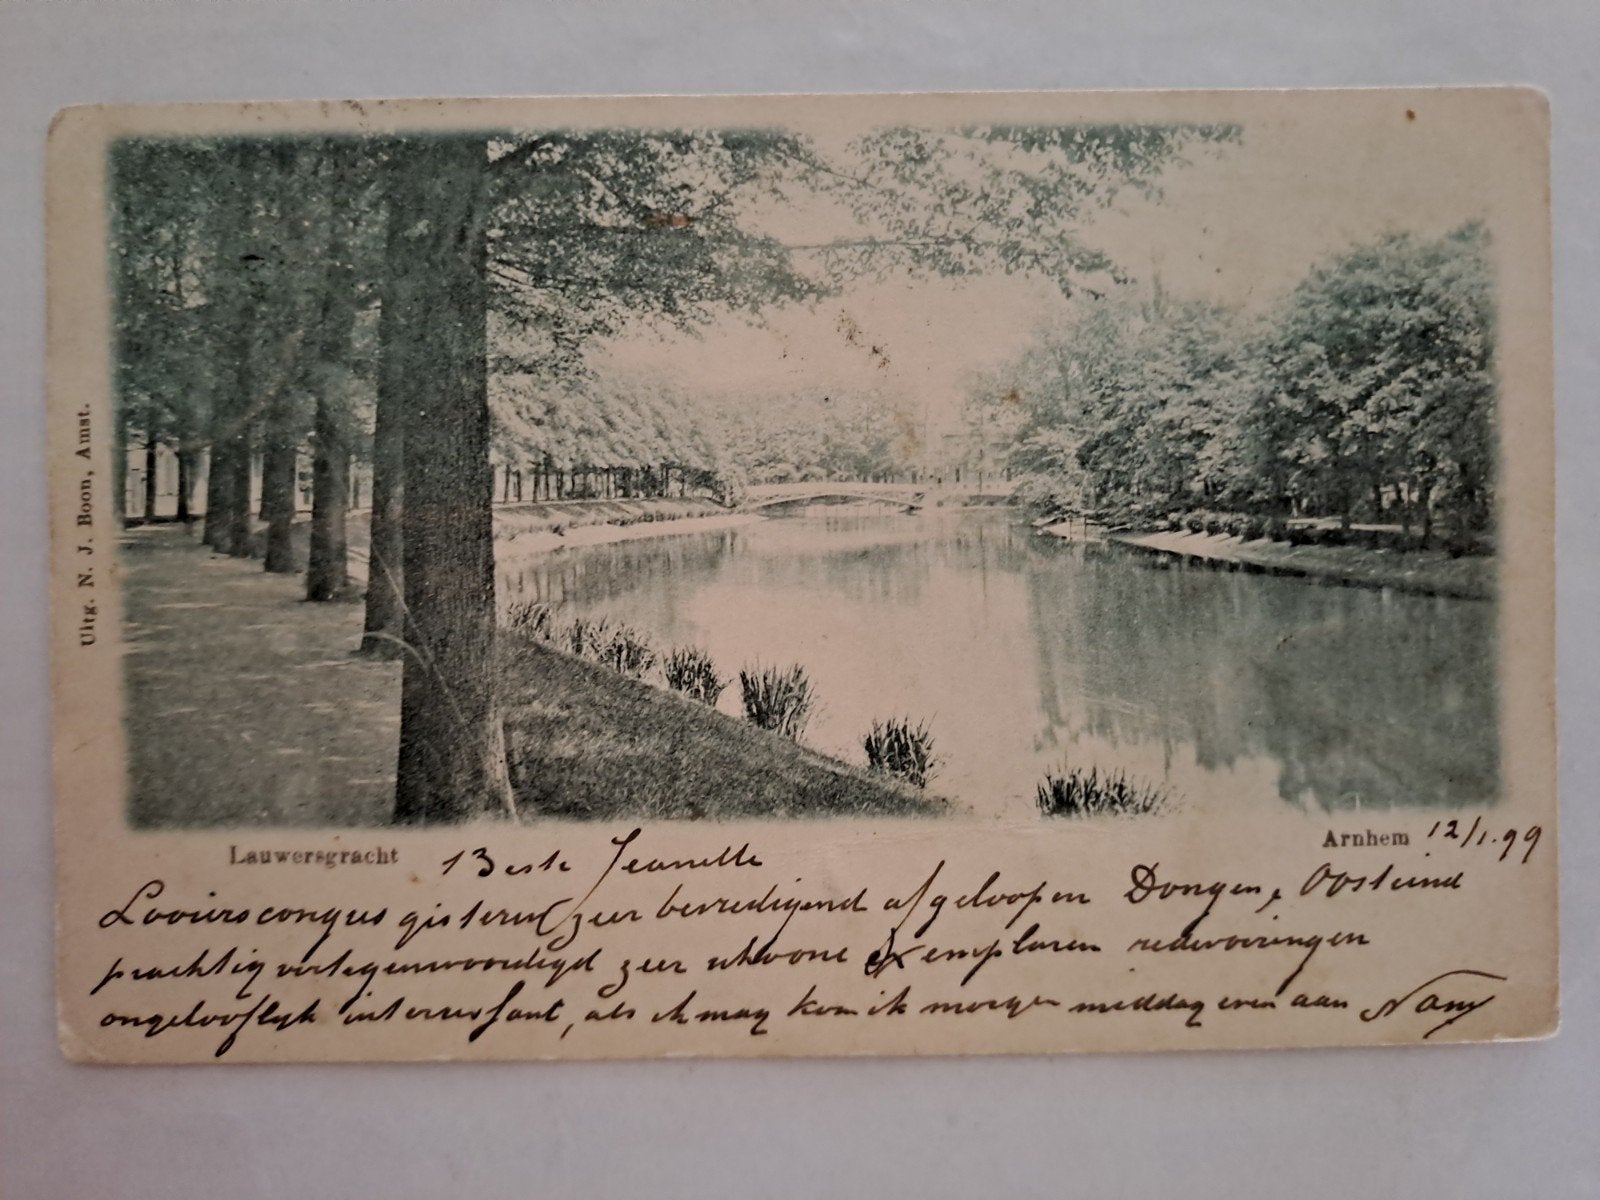 Uitg. N. J. Boon, Amst.
Lauwersgracht
Arnhem 12/1.99
Beste Jeanette
Looierscongres gisteren zeer bevredigend afgeloopen Dongen, Oosteind
prachtig vertegenwoordigd zeer exemplaren redevoeringen
ongelooflijk interressant, als ik mag kom ik morgen middag even aan